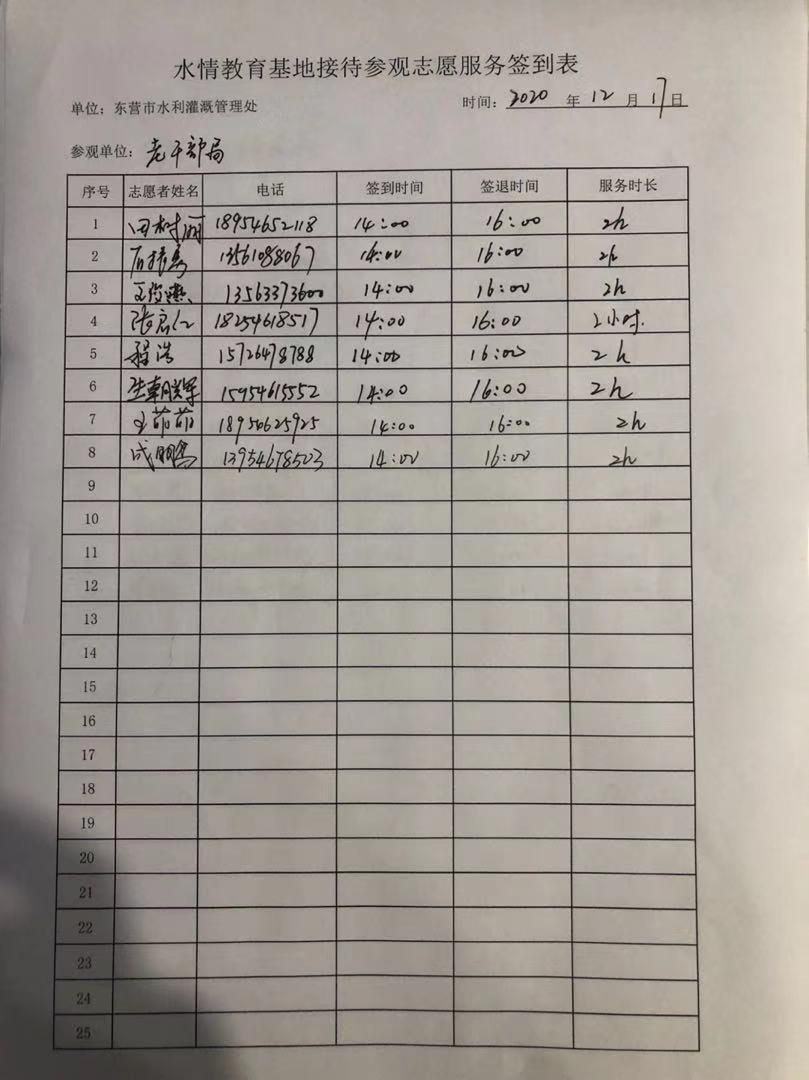 水情教育基地接待参观志愿服务签到表
单位：东营市水利灌溉管理处 时间：2020 年 12 月 17 日
参观单位：老干部局
序号 志愿者姓名 电话 签到时间 签退时间 服务时长
1 田树丽 18954652118 14:00 16:00 2h
2 13561088067 14:00 16:00 2h
3 13563373600 14:00 16:00 2h
4 18254618517 14:00 16:00 2小时.
5 程浩 15726478788 14:00 16:00 2h
6 15954615552 14:00 16:00 2h
7 王茹茹 18950625925 14:00 16:00 2h
8 成鹏 13954678503 14:00 16:00 2h
9
10
11
12
13
14
15
16
17
18
19
20
21
22
23
24
25